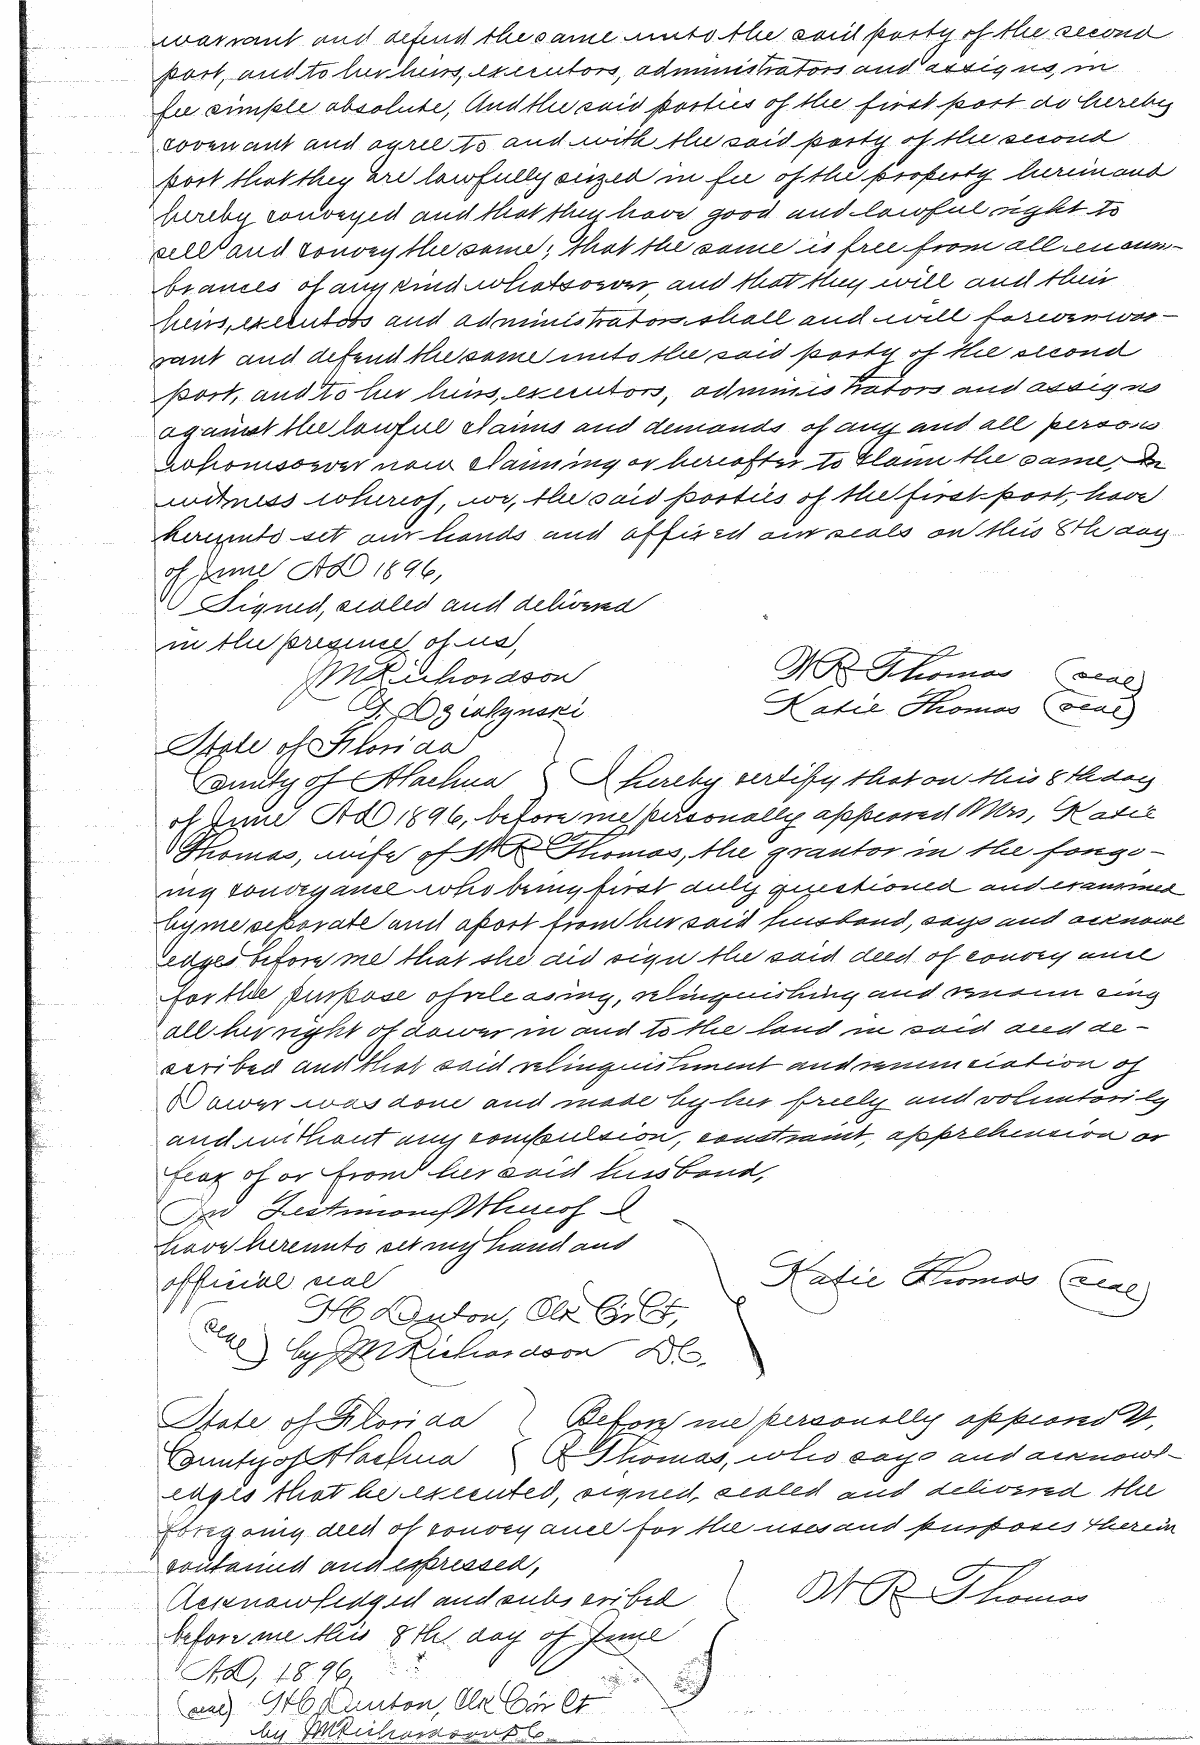 warrant and defend the same unto the said party of the second
part, and to her heirs, executors, administrators and assigns, in
fee simple absolute, And the said parties of the first part do hereby
covenant and agree to and with the said party of the second
part that they are lawfully seized in fee of the property herein and
hereby conveyed and that they have good and lawful right to
sell and convey the same; that the same is free from all encum-
brances of any kind whatsoever, and that they will and their
heirs, executors and administrators shall and will forever war-
rant and defend the same unto the said party of the second
part, and to her heirs, executors, administrators and assigns
against the lawful claims and demands of any and all persons
whomsoever now claiming or hereafter to claim the same, In
witness whereof, we, the said parties of the first part, have
hereunto set our hands and affixed our seals on this 8th day
of June AD 1896,
Signed, sealed and delivered
in the presence of us,
JM Richardson
G. Dzialynski
W R Thomas (seal)
Katie Thomas (seal)
State of Florida
County of Alachua } I hereby certify that on this 8th day
of June AD 1896, before me personally appeared Mrs, Katie
Thomas, wife of W R Thomas, the grantor in the forego-
ing conveyance who being first duly questioned and examined
by me separate and apart from her said husband, says and acknowl
edges before me that she did sign the said deed of conveyance
for the purpose of releasing, relinquishing and renouncing
all her right of dower in and to the land in said deed de-
scribed and that said relinquishment and renunciation of
Dower was done and made by her freely and voluntarily
and without any compulsion, constraint, apprehension or
fear of or from her said husband,
In Testimony Whereof I
have hereunto set my hand and
official seal
Katie Thomas (seal)
H C Denton, Clk Cir Ct,
(seal) by JM Richardson DC.
State of Florida } Before me personally appeared W,
County of Alachua } R Thomas, who says and acknowl-
edges that he executed, signed, sealed and delivered the
foregoing deed of conveyance for the uses and purposes therein
contained and expressed,
Acknowledged and subscribed
before me this 8th day of June
AD, 1896,
W R Thomas
(seal) H C Denton, Clk Cir Ct
by JM Richardson DC